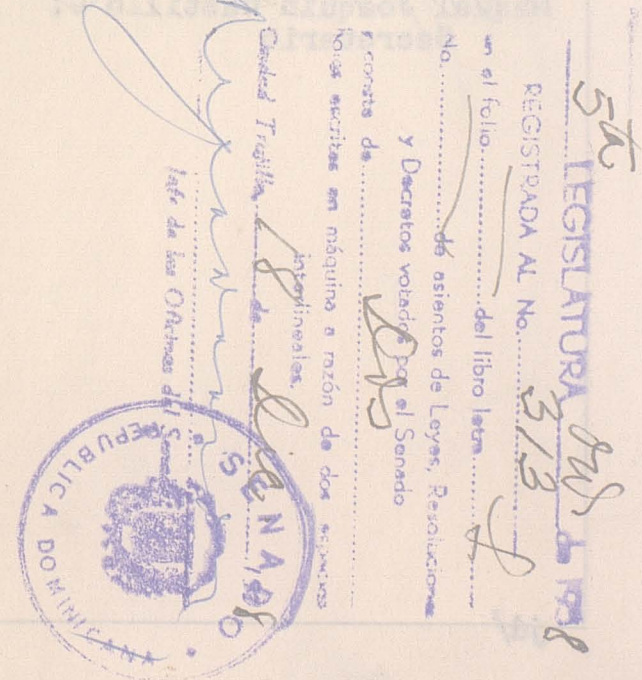 5ta LEGISLATURA Ord. de 1958
REGISTRADA AL No. 313
en el folio..........del libro letra
No..........de asientos de Leyes, Resoluciones
y Decretos votados por el Senado
consta de..........Dos
hojas escritas en máquina a razón de dos espacios
interlineales.
Ciudad Trujillo 18 de Dic 1958
Jefe de las Oficinas del Senado
SENADO
REPUBLICA DOMINICANA
jd/